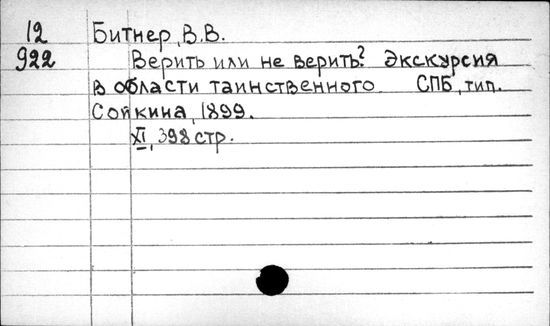 12 Битнер, В.В.
922 Верить или не верить? Экскурсия
в области таинственного СПБ, тип.
Сойкина, 1899.
XI, 398 стр.